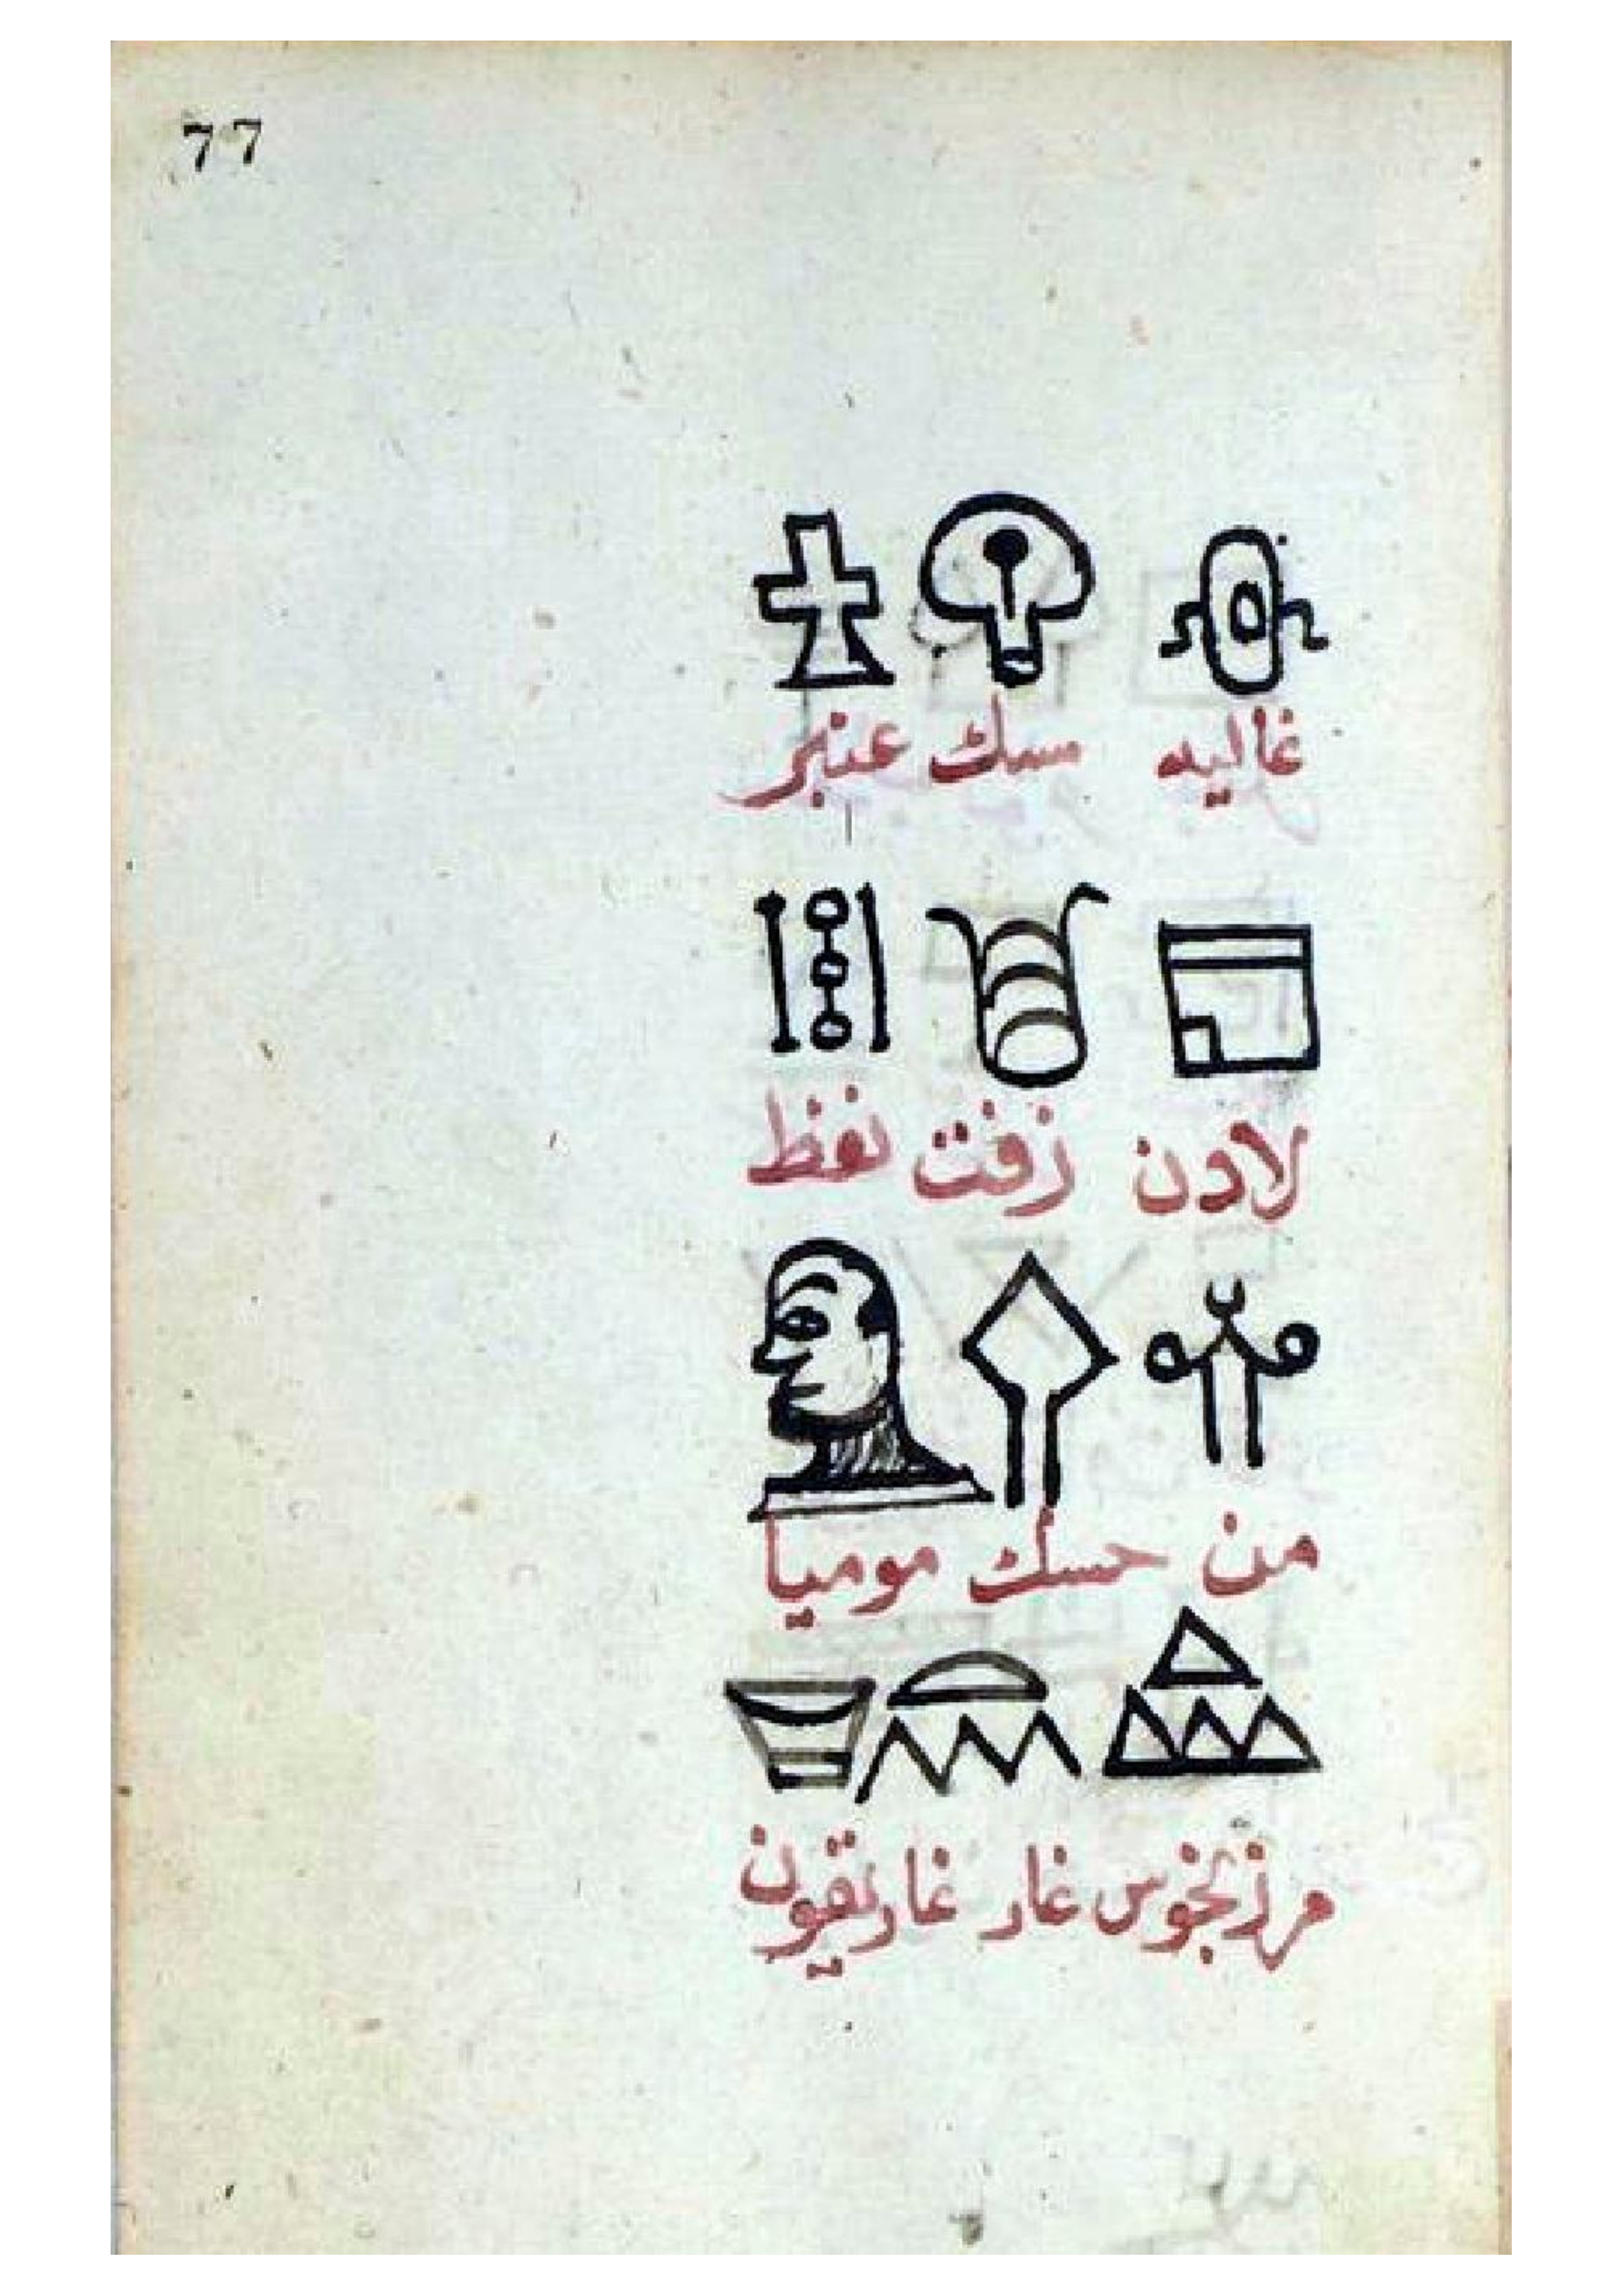 77
غاليه مسك عنبر
لادن زفت نفظ
من حسك موميا
مرزنجوس غار غاريقون